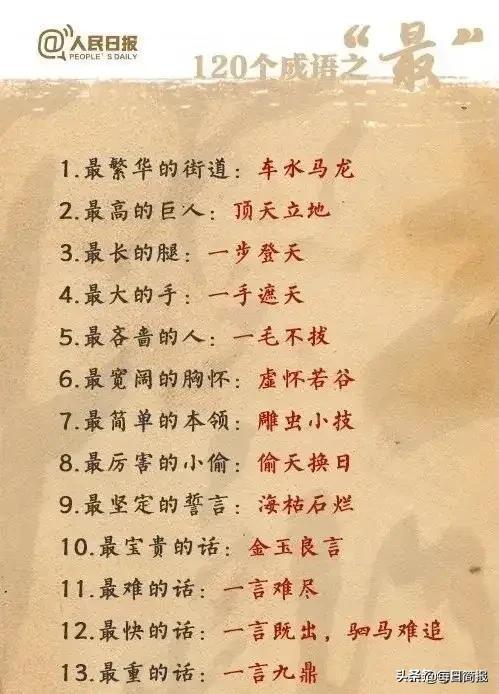 @人民日报
PEOPLE'S DAILY
120个成语之“最”
1.最繁华的街道：车水马龙
2.最高的巨人：顶天立地
3.最长的腿：一步登天
4.最大的手：一手遮天
5.最吝啬的人：一毛不拔
6.最宽阔的胸怀：虚怀若谷
7.最简单的本领：雕虫小技
8.最厉害的小偷：偷天换日
9.最坚定的誓言：海枯石烂
10.最宝贵的话：金玉良言
11.最难的话：一言难尽
12.最快的话：一言既出，驷马难追
13.最重的话：一言九鼎
头条@每日商报